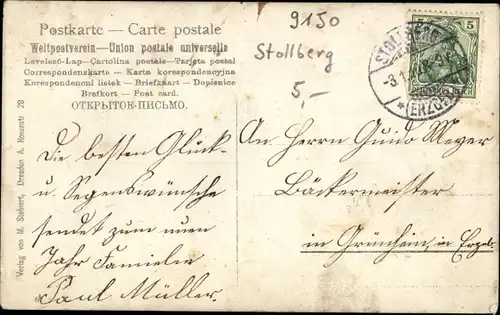 Postkarte — Carte postale
Weltpostverein — Union postale universelle
Levelezö-Lap — Cartolina postale — Tarjeta postal
Correspondenzkarte — Karta korespondencyjna
Korespondencni listek — Briefkaart — Dopisnice
Brefkort — Post card.
ОТКРЫТОЕ-ПИСЬМО.
9150
Stollberg
5,-
5
STOLLBERG
(ERZGEB.)
Die besten Glück-
u. Segenswünsche
sendet zum neuen
Jahr Familie
Paul Müller.
An Herrn Guido Meyer
Bäckermeister
in Grünhain, in Erzgeb.
Verlag von M. Steinert, Dresden A. Rosenstr. 28